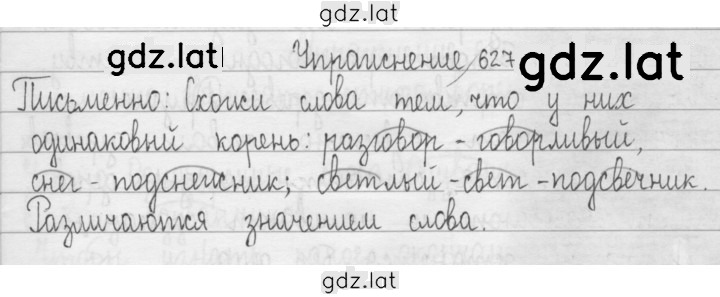 gdz.lat
gdz.lat Упражнение 627 gdz.lat
Письменно: Схожи слова тем, что у них
одинаковый корень: разговор - говорливый,
снег - подснежник; светлый - свет - подсвечник.
Различаются значением слова.
gdz.lat